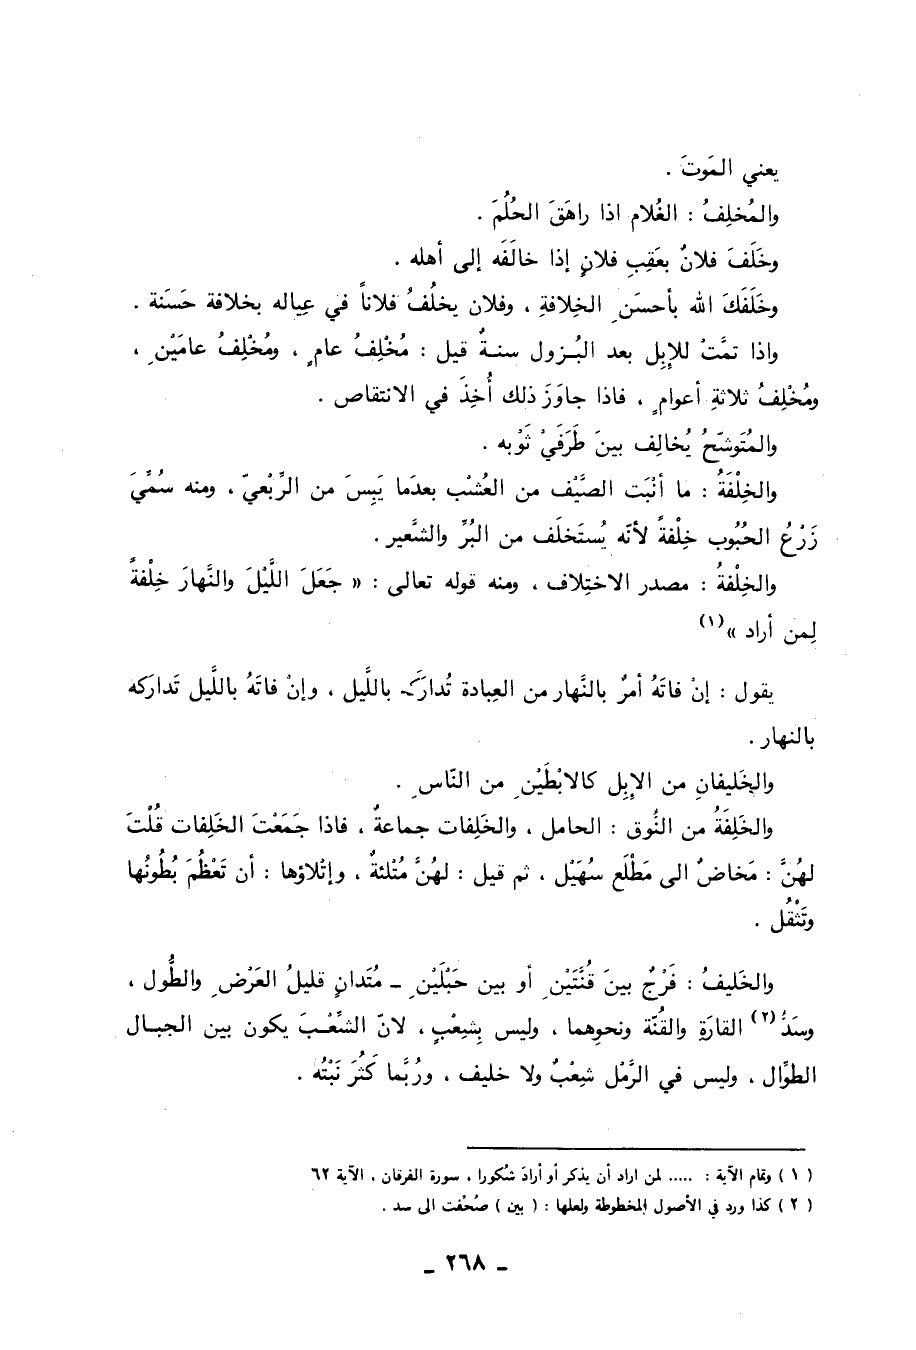 يعني المَوتَ .
والمُخلِفُ : الغُلام اذا راهَقَ الحُلُمَ .
وخَلَفَ فلانٌ بعَقِبِ فلانٍ إذا خالَفَه إلى أهله .
وخَلَفَكَ الله بأحسَنِ الخِلافةِ ، وفلان يخلُفُ فلاناً في عِياله بخلافة حَسَنة .
واذا تمَّتْ للإبِل بعد البُزول سنةٌ قيل : مُخْلِفُ عامٍ ، ومُخْلِفُ عامَيْنِ ،
ومُخْلِفُ ثلاثةِ أعوامٍ ، فاذا جاوَزَ ذلك أُخِذَ في الانتقاص .
والمُتَوشّحُ يُخالِف بينَ طَرَفَيْ ثَوْبه .
والخِلْفَةُ : ما أنْبَت الصَّيْف من العُشْب بعدَما يَبِسَ من الرِّبْعيّ ، ومنه سُمِّيَ
زَرْعُ الحُبُوب خِلْفةً لأنّه يُستَخلَف من البُرِّ والشَّعير .
والخِلْفةُ : مصدر الاختِلاف ، ومنه قوله تعالى : « جَعَلَ اللَّيْلَ والنَّهارَ خِلْفةً
لِمن أراد »(١)
يقول : إنْ فاتَهُ أمرٌ بالنَّهار من العِبادة تُدارَكَ باللَّيل ، وإنْ فاتَهُ باللَّيل تَداركه
بالنهار .
والخَليفانِ من الإبِل كالابْطَيْنِ من النّاسِ .
والخَلِفَةُ من النُّوق : الحامل ، والخَلِفات جماعةٌ ، فاذا جَمَعْتَ الخَلِفات قُلْتَ
لهُنَّ : مَخاضٌ الى مَطْلَع سُهَيْل ، ثم قيل : لهُنَّ مُتْلئةٌ ، وإتْلاؤها : أن تَعْظُمَ بُطُونُها
وتَثْقُل .
والخَليفُ : فَرْجٌ بينَ قُنَّتَيْنِ أو بين حَبْلَيْنِ – مُتَدانٍ قليلُ العَرْضِ والطُّول ،
وسَدُّ(٢) القارَةِ والقُنّة ونحوِهما ، وليس بِشِعْبٍ ، لانّ الشِّعْبَ يكون بين الجبال
الطوِّال ، وليس في الرَّمْل شِعْبٌ ولا خليف ، ورُبَّما كَثُرَ نَبْتُه .
( ١ ) وتمام الآية : ..... لمن اراد أن يذكر أو أرادَ شُكورا ، سورة الفرقان ، الآية ٦٢
( ٢ ) كذا ورد في الأصول المخطوطة ولعلها : ( بين ) صُحِّفت الى سد .
– ٢٦٨ –